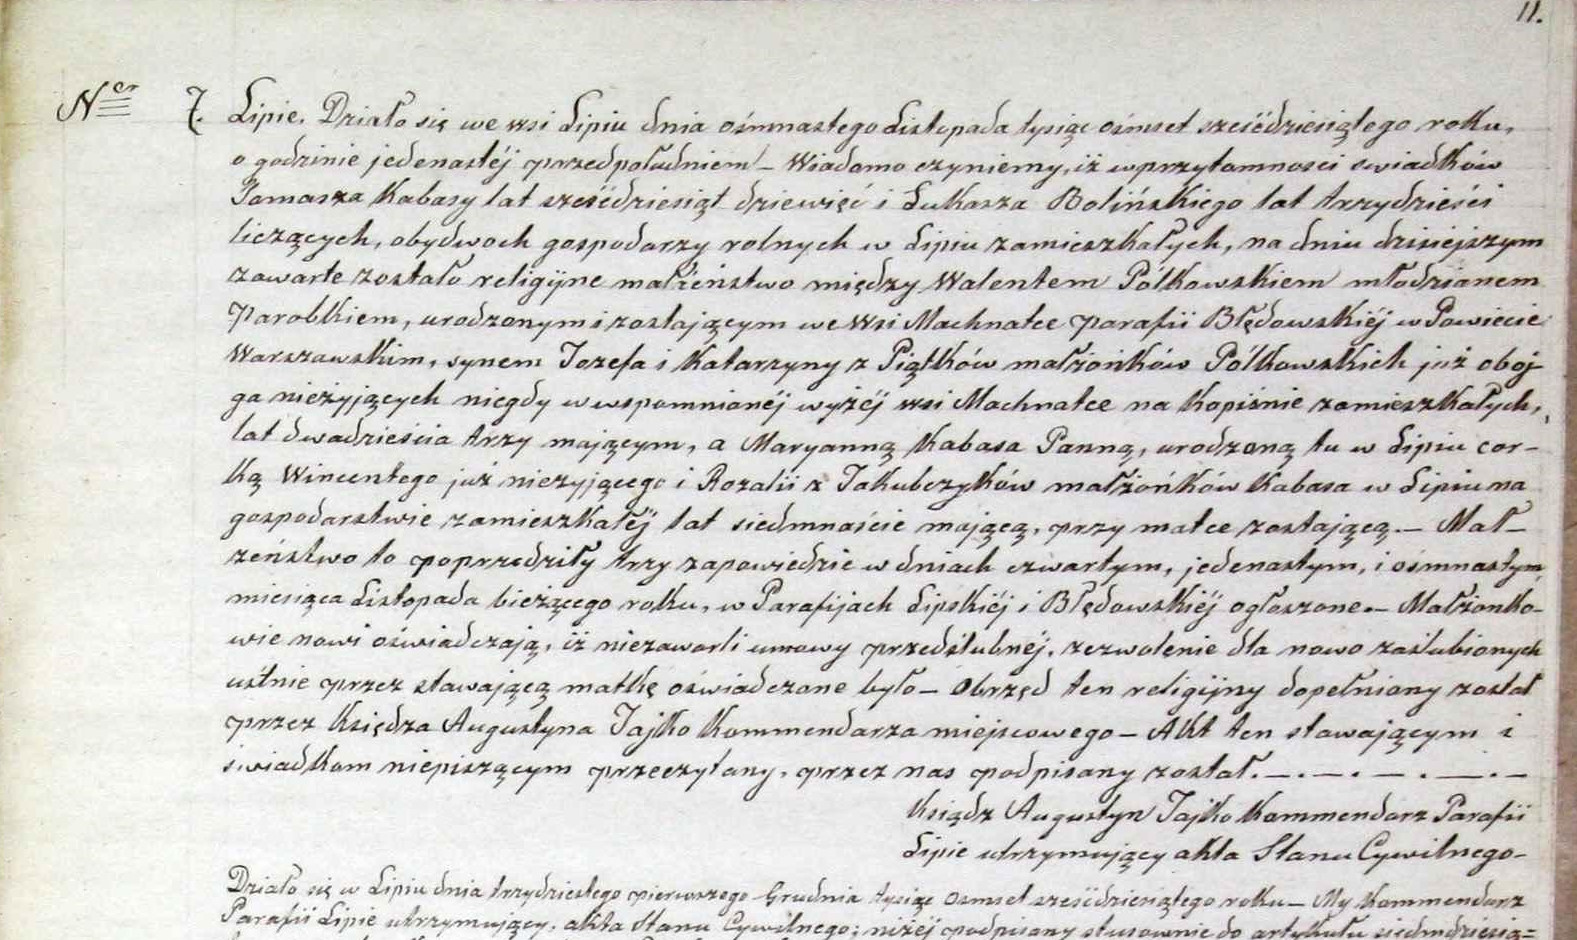 11.
Ner 7. Lipie. Działo się we wsi Lipiu dnia ośmnastego Listopada tysiąc ośmset sześćdziesiątego roku,
o godzinie jedenastéj przedpołudniem – Wiadomo czyniemy, iż wprzytomnosci swiadków
Tomasza Kabasy lat sześćdziesiąt dziewięć i Łukasza Bolińskiego lat trzydzieści
liczących, obydwoch gospodarzy rolnych w Lipiu zamieszkałych, na dniu dzisiejszym
zawarte zostało religijne małżeństwo między Walentem Pólkowskiem młodzianem
Parobkiem, urodzonym i zostającym we Wsi Machnatce parafii Błędowskiéj w Powiecie
Warszawskim, synem Jozefa i Katarzyny z Piątków małżonków Pólkowskich już oboj-
ga nieżyjących niegdy w wspomnionéj wyżéj wsi Machnatce na Kopiśnie zamieszkałych,
lat dwadzieścia trzy mającym, a Maryanną Kabasa Panną, urodzoną tu w Lipiu cor-
ką Wincentego już nieżyjącego i Rozalii z Jakubczyków małżońków Kabasa w Lipiu na
gospodarstwie zamieszkałéj lat siedmnaście mającą, przy matce zostającą. – Mał-
żeństwo to poprzedziły trzy zapowiedzie w dniach czwartym, jedenastym, i ośmnastym
miesiąca Listopada bieżącego roku, w Parafijach Lipskiéj i Błędowskiéj ogłoszone. – Małżonko-
wie nowi oświadczają, iż niezawarli umowy przedślubnéj, zezwolenie dla nowo zaślubionych
ustnie przez stawającą matkę oświadczone było – Obrzęd ten religijny dopełniony został
przez Księdza Augustyna Jajko Kommendarza miejscowego – Akt ten stawającym i
świadkom niepiszącym przeczytany, przez nas podpisany został. – . – . – . – . –
Ksiądz Augustyn Jajko Kommendarz Parafii
Lipie utrzymujący akta Stanu Cywilnego –
Działo się w Lipiu dnia trzydziestego pierwszego Grudnia tysiąc osmset sześćdziesiątego roku – My Kommendarz
Parafii Lipie utrzymujący akta Stanu Cywilnego; niżéj podpisany stosownie do artykułu siedmdziesią=